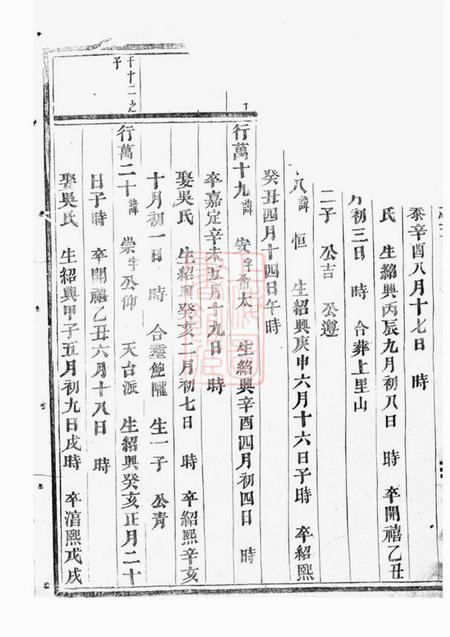 泰辛酉八月十七日 時
氏 生紹興丙辰九月初八日 時 卒開禧乙丑
月初三日 時 合葬上里山
二子 公吉 公遵
八 諱 恒 生紹興庚申六月十六日子時 卒紹熙
癸丑四月十四日午時
行萬十九 諱 安 字 太 生紹興辛酉四月初四日 時
卒嘉定辛未五月十九日 時
娶吳氏 生紹興癸亥二月初七日 時 卒紹熙辛亥
十月初一日 時 合葬鮑隴 生一子 公青
千十二之子
行萬二十 諱 崇 字 公仰 天台派 生紹興癸亥正月二十
日子時 卒開禧乙丑六月十八日 時
娶吳氏 生紹興甲子五月初九日戌時 卒淳熙戊戌